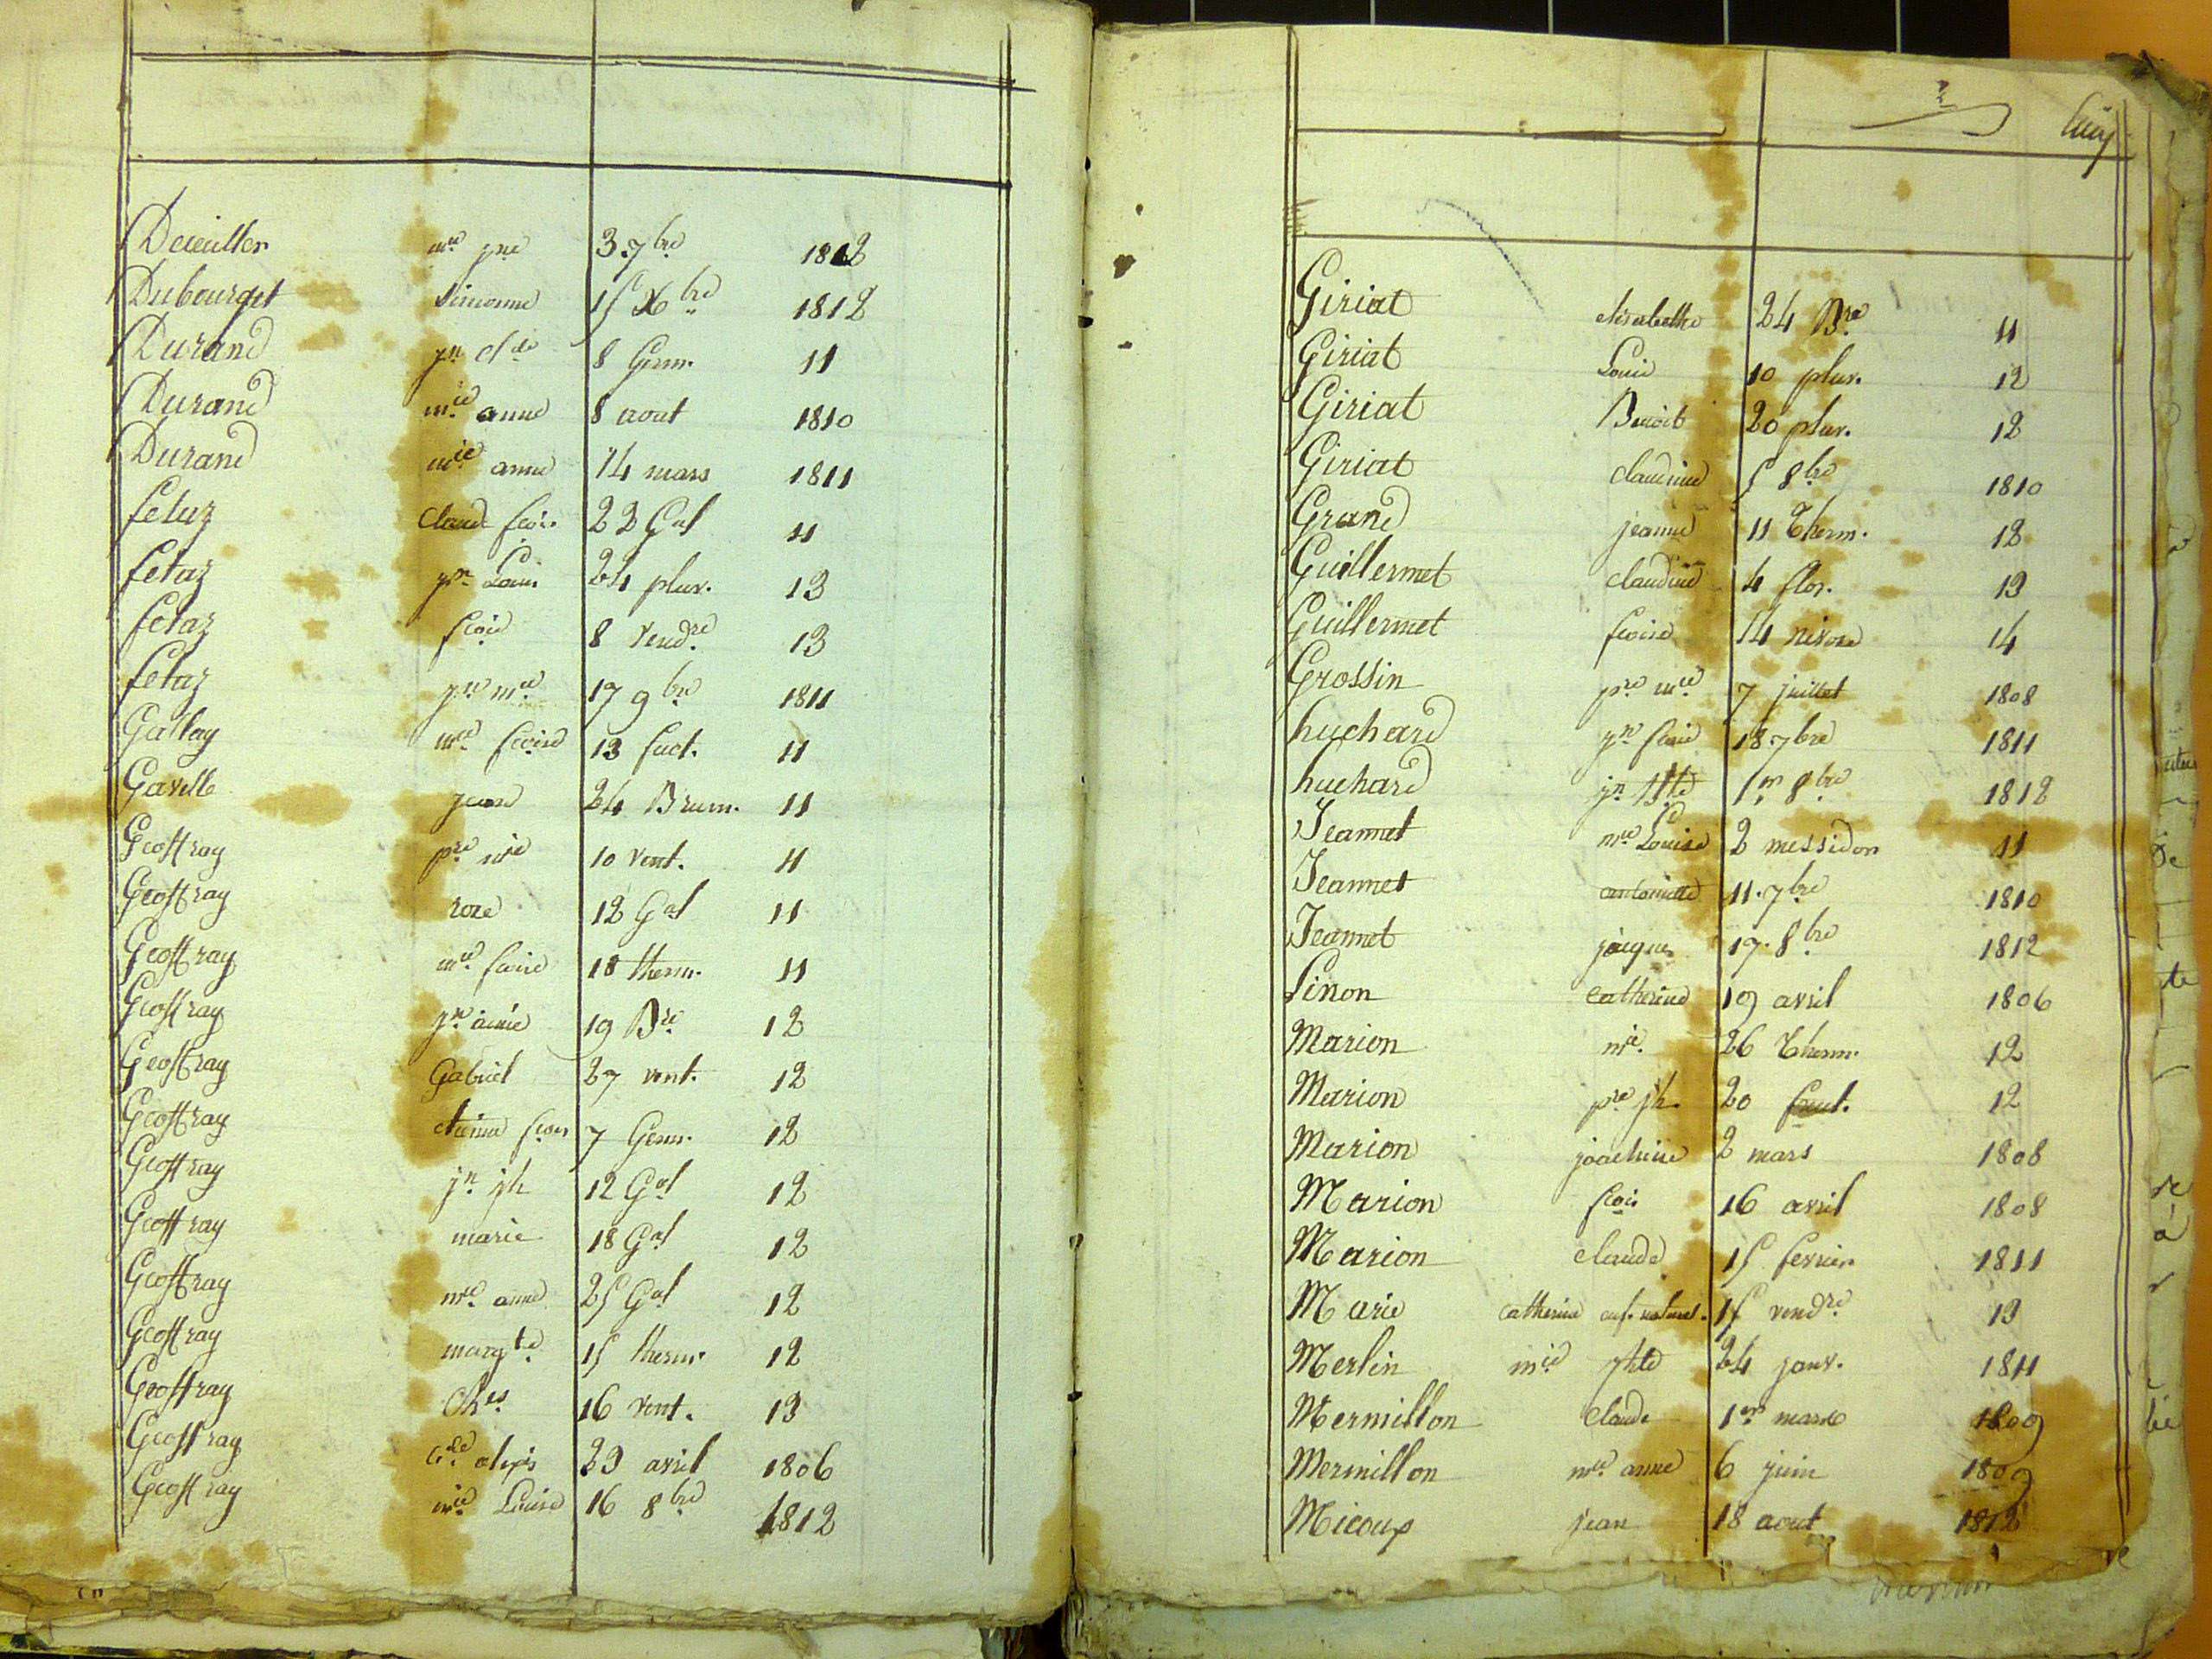 Deieuller mie jne 3 7bre 1812
Dubourget Simonne 15 Xbre 1812
Durand jn clde 8 Germ. 11
Durand mie anne 8 aout 1810
Durand mie anne 14 mars 1811
fetaz Claude fcois 22 Gal 11
fetaz jn Louis 24 pluv. 13
fetaz fcois 8 vendre 13
fetaz jne mie 17 9bre 1811
Gallay mie fcoise 13 fuct. 11
Gavelle jean 24 Brum. 11
Geoffray pre mie 10 vent. 11
Geoffray roze 12 Gal 11
Geoffray mie fcoise 18 therm. 11
Geoffray jn aimé 19 Bre 12
Geoffray Gabriel 27 vent. 12
Geoffray etienne fcois 7 Germ. 12
Geoffray jn jh 12 Gal 12
Geoffray marie 18 Gal 12
Geoffray mie anne 25 Gal 12
Geoffray margte 15 therm. 12
Geoffray Chles 16 vent. 13
Geoffray alexis 23 avril 1806
Geoffray mie Louise 16 8bre 1812
Giriat elisabethe 24 Bre 11
Giriat Louis 10 pluv. 12
Giriat Benoit 20 pluv. 12
Giriat claudine 5 8bre 1810
Grand jeanne 11 Therm. 12
Guillermet claudine 4 flor. 13
Guillermet fcoise 14 nivose 14
Grossin pre mie 7 juillet 1808
huchard jn fcois 18 7bre 1811
huchard jn Btte 1er 8bre 1812
Jeannet mie Louise 2 messidor 11
Jeannet antoinette 11. 7bre 1810
Jeannet jacques 17. 8bre 1812
Linon catherine 19 avril 1806
Marion mie 26 Therm. 12
Marion pre jh 20 fruct. 12
Marion joachine 2 mars 1808
Marion fcois 16 avril 1808
Marion claude 15 fevrier 1811
Marie catherine enf. naturel. 15 vendre 13
Merlin mie jhte 24 janv. 1811
Mermillon claude 1er mars 1809
Mermillon mie anne 6 juin 1809
Micoux jean 18 aout 1812